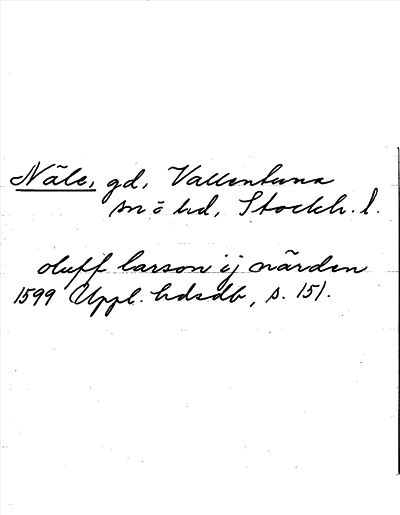 Näle, gd, Vallentuna
sn o hd, Stockh. l.
oluff larson ij närden
1599 Uppl. hdsdb, s. 151.